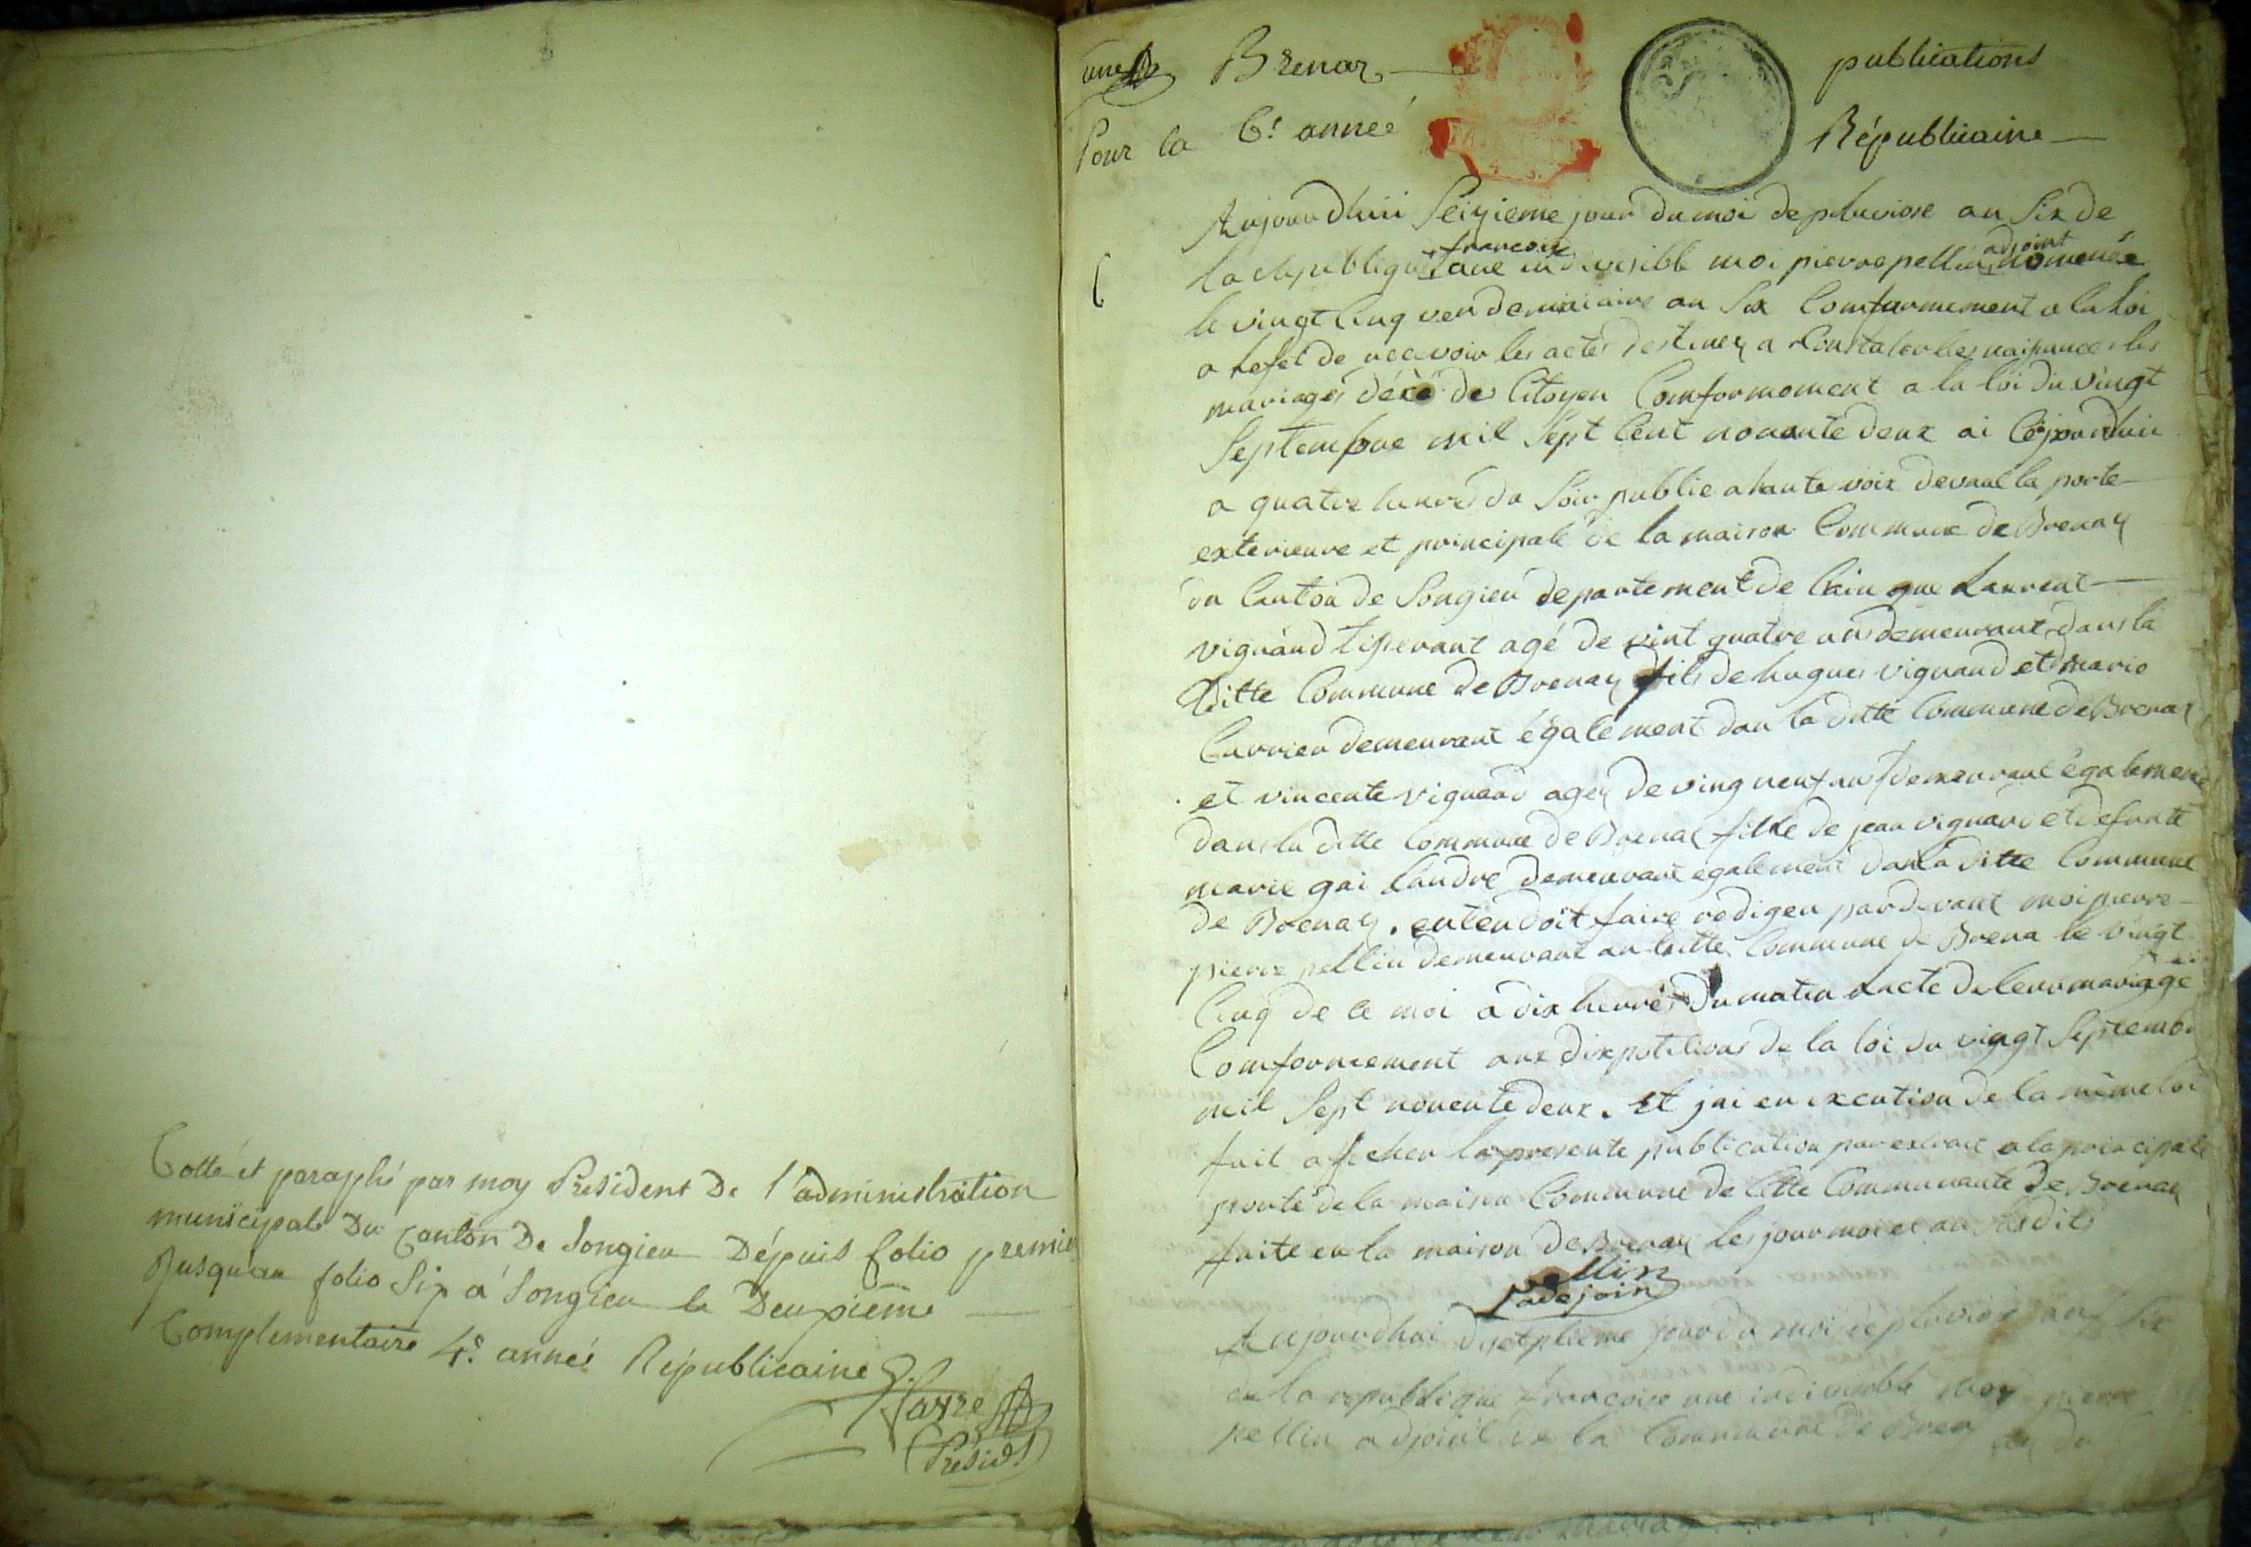 Cotté et paraphé par moy President De l'administration
municipale Du Canton De Songieu Dépuis folio premier
Jusqu'au folio Six a Songieu le Deuxieme
Complementaire 4.e année Républicaine
Présid
une Brenaz publications
Pour la 6.e année Républicaine
Aujourdhui Seizieme jour du moi de pluviose an Six de
la Republique francoise une indivisible moi pierre pellin adjoint nommée
le vingt Cinq vendemiaire an Six Comformement a la Loi
a lefet de recevoir les actes destinez a Constater les naissances les
mariages décè des Citoyen Comformement a la loi du vingt
Septembre mil Sept Cent nonante deux ai Cejourdhui
a quatre heures du Soir publie a haute voix devant la porte
exterieure et principale de la maison Commune de Brenaz
du Canton de Songieu departement de Lain que Laurent
vignand tisserant agé de vint quatre ans demeurant dans la
ditte Commune de Brenaz fils de hugues vignand et marie
Currieu demeurant également dan la ditte Commune de Brenaz
et vincente vignand agéz de ving neuf ans demeurant égalemen
dans la ditte Commune de Brenaz fille de jean vignand et defunte
marie gai demeurant egalement dan la ditte Commune
de Brenaz. entendoit faire rediger pardevant moi pierre
pierre pellin demeurant an laditte Commune de Brena le vingt
Cinq de ce moi a dix heures du matin Lacte de leur mariage
Comformement aux dispotitions de la loi du vingt Septemb
mil Sept nonente deux. Et jai en execution de la même loi
fait aficher la presente publication par extrait a la principale
porte de la maison Commune de Cette Communaute de Brenaz
faite en la maison de Brenaz les jour moi et an Susdits
Pellin
adejoin
Aujourdhui disetptieme jour du moi de pluviose an Six
de la republique francoise une indivisible moy pierre
pellin adjoint de la Commune de Bren du